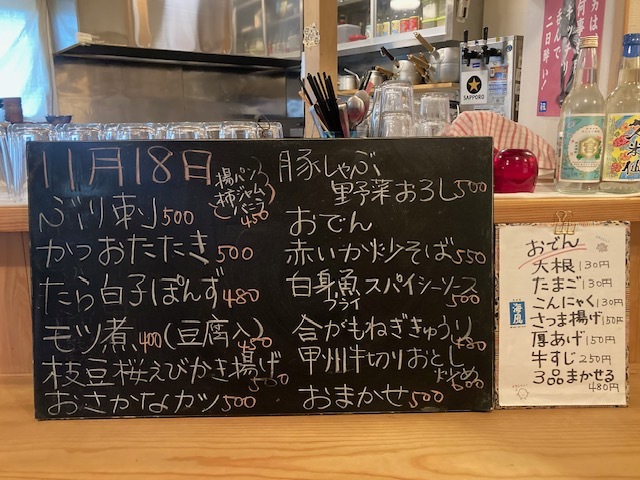 11月18日
揚パン
柿ジャム
バニラ
450
ぶり刺 500
かつおたたき 500
たら白子ぽんず 480
モツ煮、400(豆腐入)450
枝豆桜えびかき揚げ 500
おさかなカツ 500
豚しゃぶ
里野菜おろし 500
おでん
赤いか炒そば 550
白身魚スパイシーソース
フライ
500
合がもねぎきゅうり 480
甲州牛切りおとし
炒め
おまかせ 500
おでん
大根 130円
たまご 130円
こんにゃく 130円
さつま揚げ 150円
厚あげ 150円
牛すじ 250円
3品まかせる
480円
海風
SAPPORO
二日酔い!